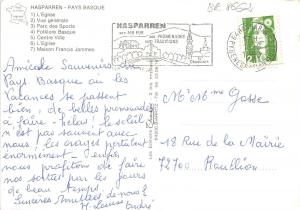 HASPARREN - PAYS BASQUE
1) L'Eglise
2) Vue générale
3) Parc des Sports
4) Folklore Basque
5) Centre Ville
6) L'Eglise
7) Maison Francis Jammes
HASPARREN
SON AIR PUR
SES PROMENADES
TRADITIONS
Amicale Souvenirs du
Pays Basque où les
Vacances se passent
bien, de belles promenades
à faire - hélas! le soleil
n'est pas souvent avec
nous! les orages
énormément -
nous profitons de faire
nos sorties par les jours
de beau temps!
Sincères Amitiés de nous 2
André
M et Mme Gosse
18 Rue de la Mairie
72700 Rouillon